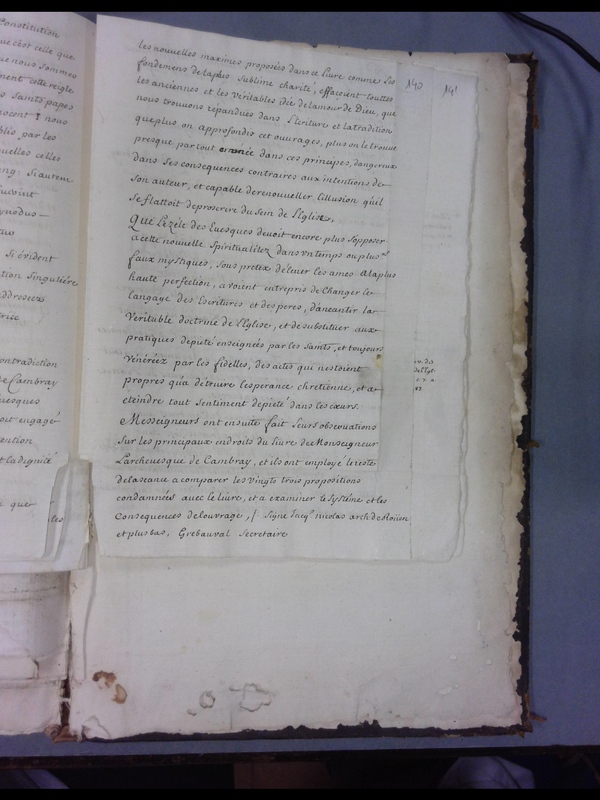 Constitution
que c'est celle que
que nous sommes
ment cette reigle
s saints papes
nocent I nous
bliés par les
uelles celles
ang: Si autem
fuerint
ynodus —
Si évident
tion singuliére
addresseés
ontradiction
de Cambray
uesques
oit engagé
et la dignité
que
les
140 141
les nouvelles maximes proposées dans ce livre comme les
fondemens de la plus sublime charité, effacoient touttes
les anciennes et les véritables idée de lamour de Dieu, que
nous trouvons répandues dans l'Ecriture et la tradition
que plus on approfondis cet ouvrages, plus on le trouve
presque par tout erronée dans ces principes, dangereux
dans ses consequences contraires aux intentions de
son auteur, et capable de renouveller l'illusion quil
se flattoit de proscrire du sein de l'Eglise,
Que Le zéle des Euesques devoit encore plus sopposer
a cette nouvelle spiritualitez dans un temps ou plus.rs
faux mystiques, sous pretex déleuer les ames a la plus
haute perfection, avoient entrepris de changer le
langage des Escritures et des peres, d'aneantir la
Veritable doctrine de l'Eglise, et de substituer aux
pratiques de pieté enseignées par les saints, et toujours
vénéréez par les fidelles, des actes qui nestoient
propres qu'a détruire lesperance chretienne, et a
eteindre tout sentiment de pieté dans les cœurs.
Messeigneurs ont ensuite fait leurs obseruations
sur les principaux endroits du liure de Monseigneur
Larcheuesque de Cambray, et ils ont employé le reste
de la seance a comparer les vingts trois propositions
condamnées avec le liure, et a examiner le Systéme et les
Consequences de louvrage, /. Signe Jacq.s nicolas arch. de Roüen
et plus bas, Grebauval Secretaire